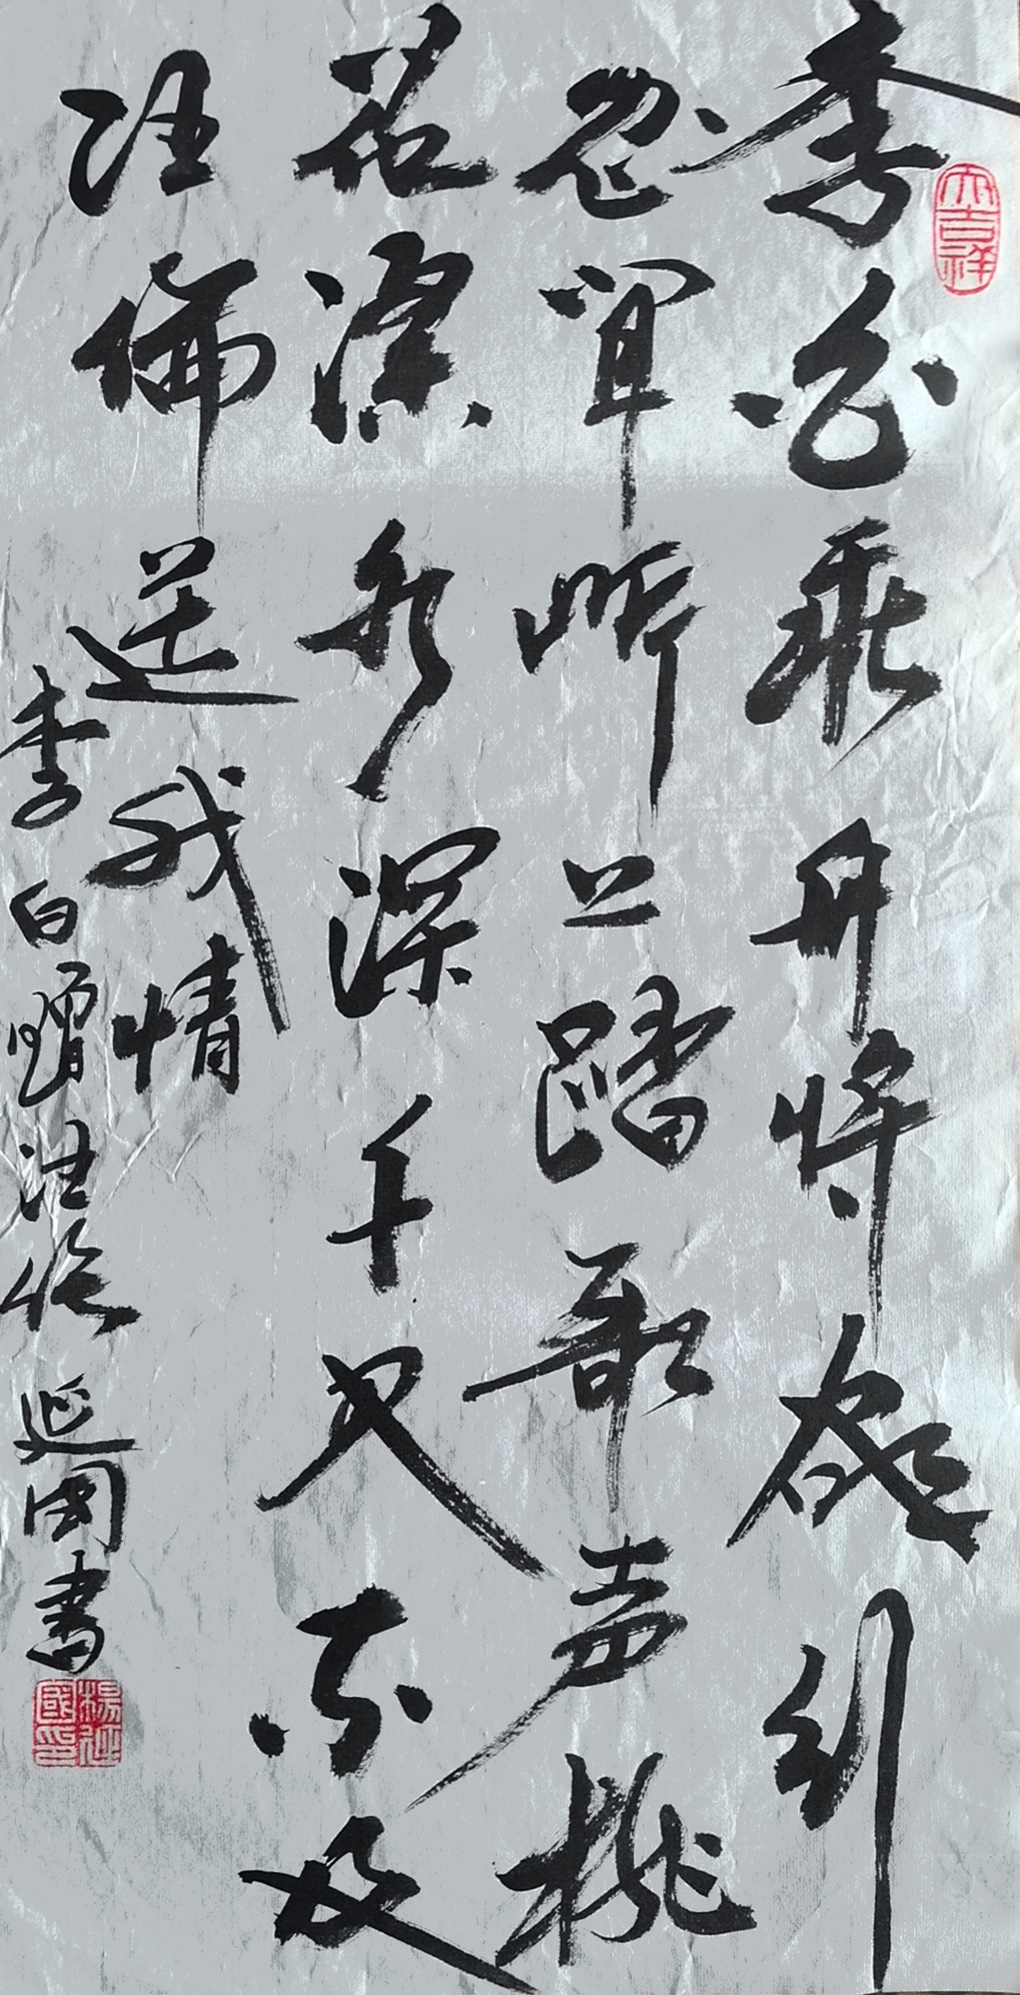 大吉祥
李白乘舟将欲行
忽闻岸上踏歌声桃
花潭水深千尺不及
汪倫送我情
李白赠汪伦 延国书
楊延國印